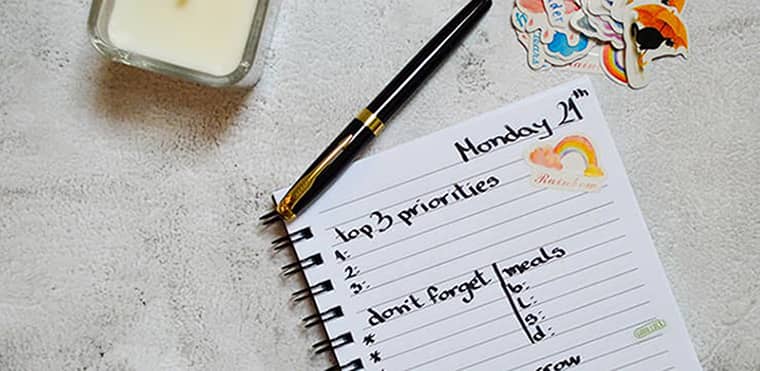 Monday 21th
Rainbow
top 3 priorities
1:
2:
3:
don't forget
*
*
meals
b:
l:
s:
d: